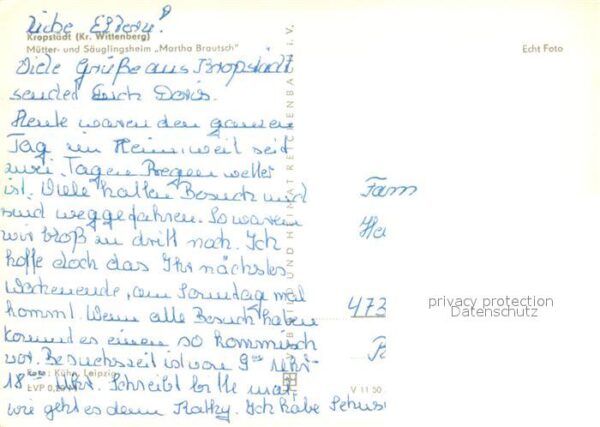 Liebe Eltern!
Kropstädt (Kr. Wittenberg)
Mütter- und Säuglingsheim „Martha Brautsch"
Echt Foto
Viele Grüße aus Kropstädt
sendet Euch Doris.
Heute waren den ganzen
Tag im Heim, weil seit
zwei Tagen Regenwetter
ist. Viele hatten Besuch und
sind weggefahren. So waren
wir bloß zu dritt noch. Ich
hoffe doch das Ihr nächstes
Wochenende, am Sonntag mal
kommt. Wenn alle Besuch haben
kommt es einen so kommisch
vor. Besuchszeit ist von 9⁰⁰ Uhr
18⁰⁰ Uhr. Schreibt bitte mal
wie geht es denn Kathy. Ich habe
Foto: Kühn, Leipzig
EVP 0,20
V 11 50
BILD UND HEIMAT REICHENBACH I. V.
Fam
473
privacy protection
Datenschutz